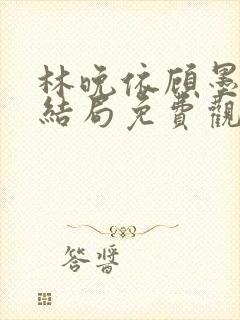 林晚依顾墨
結局免費觀
答醬